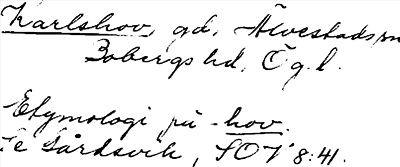 Karlshov, gd, Älvestads sn
Bobergs hd, Ög.l.
Etymologi på -hov.
Se Gårdsvik, SOV 8:41.